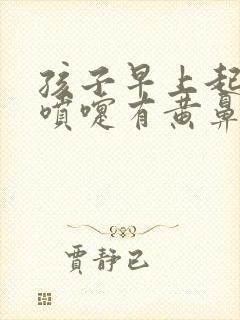 孩子早上起
喷嚏有黄鼻
贾静已